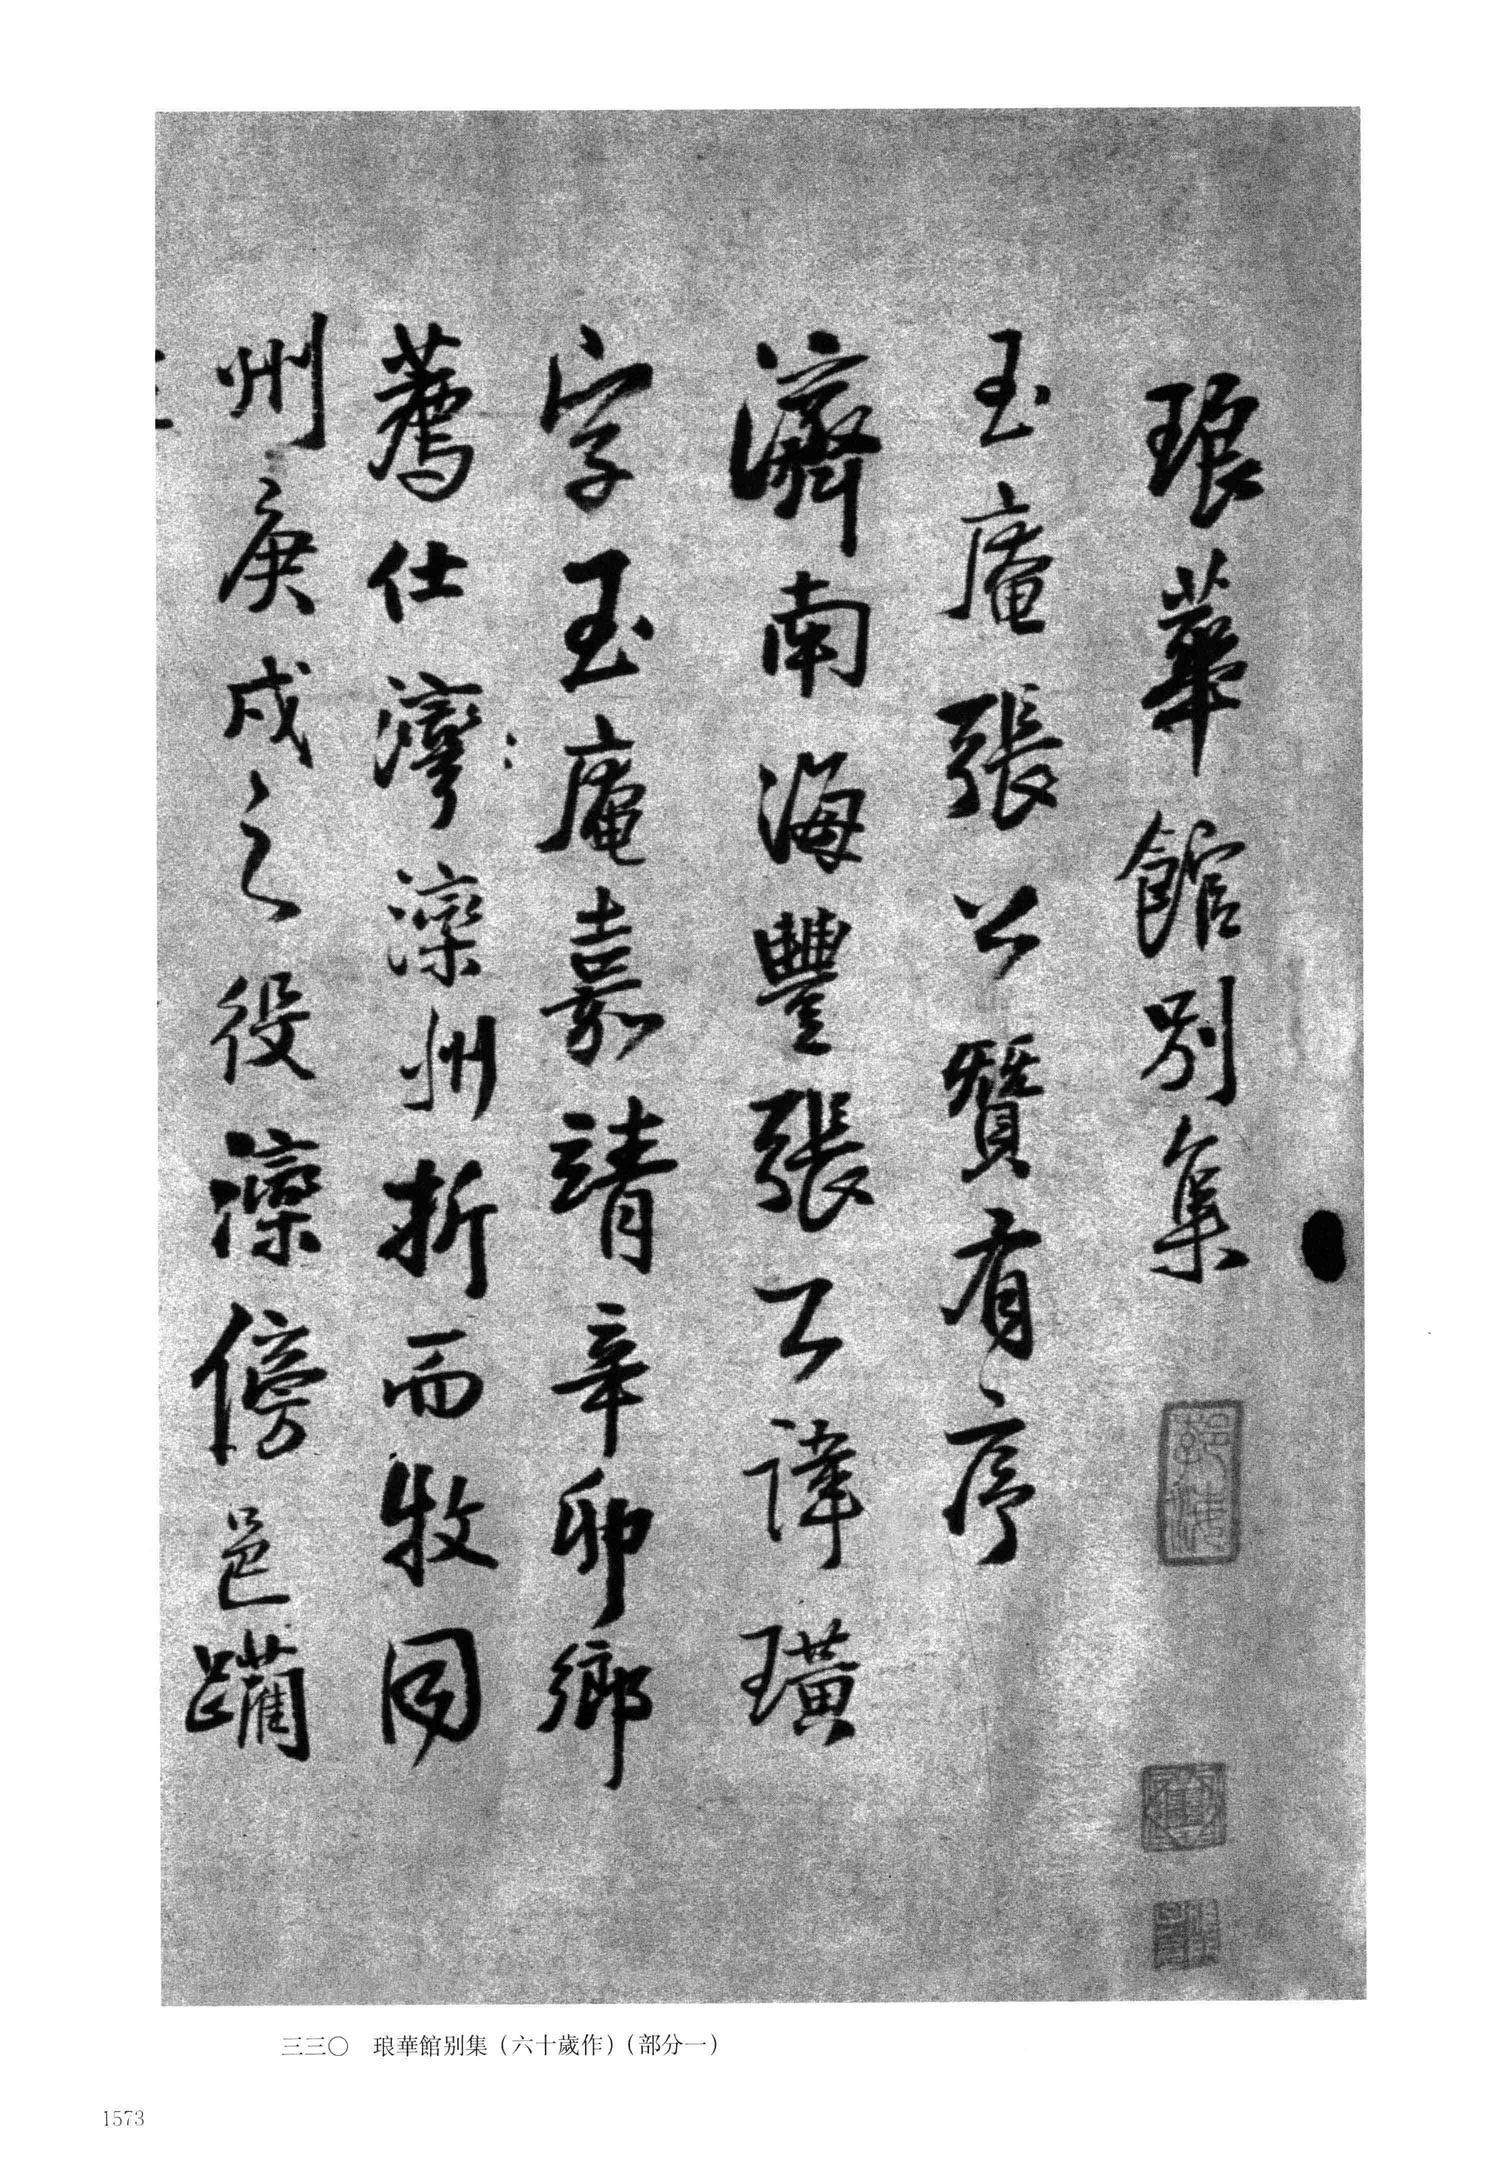 琅華館別集
玉庵張公贊有序
濟南海豐張公諱璜
字玉庵嘉靖辛卯鄉
薦仕灣灤州折而牧同
州庚戌之役灤傍邑躪
三三〇 琅華館别集（六十歲作）（部分一）
1573